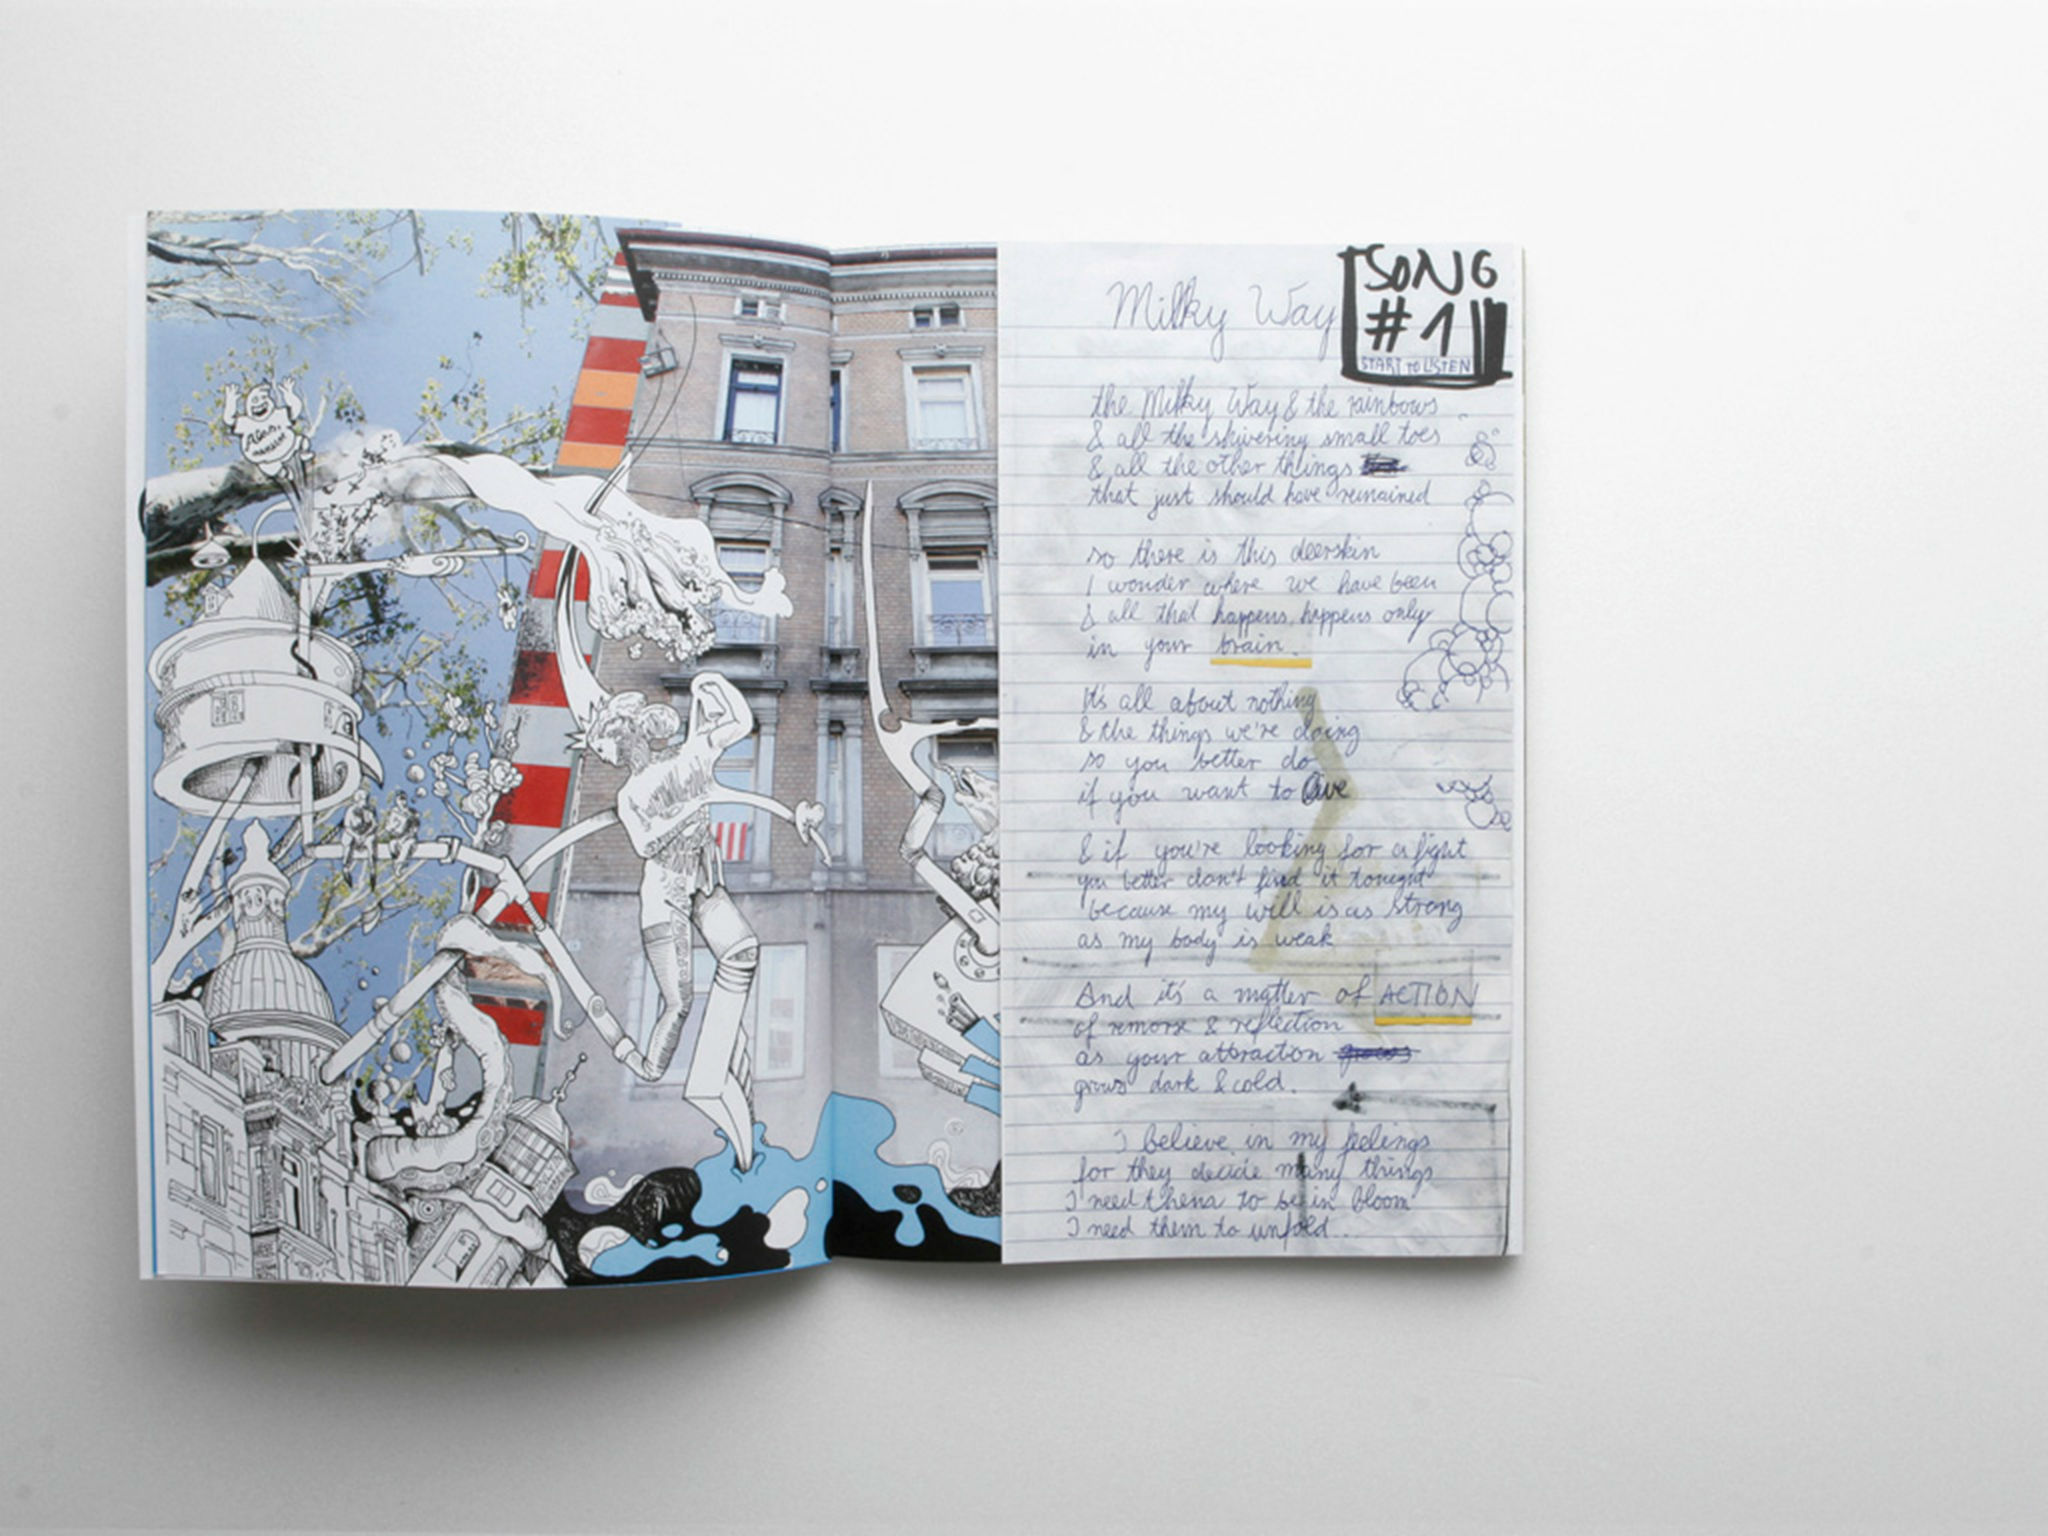 Alan,
SONG
#1
START TO LISTEN
Milky Way
the Milky Way & the rainbows
& all the shivering small toes
& all the other things
that just should have remained
so there is this deerskin
I wonder where we have been
& all that happens, happens only
in your brain.
It's all about nothing
& the things we're doing
so you better do
if you want to live
& if you're looking for a fight
you better don't find it tonight
because my will is as strong
as my body is weak
And it's a matter of ACTION
of remorse & reflection
as your attraction grows
grows dark & cold.
I believe in my feelings
for they decide many things
I need them to be in bloom
I need them to unfold.